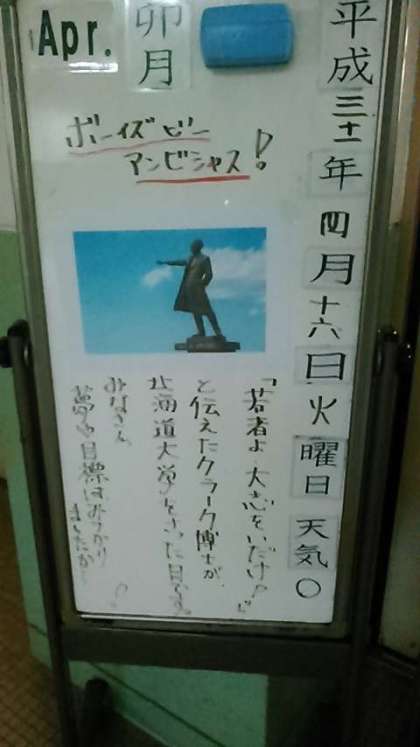 Apr.
卯月
平成三十一年四月十六日火曜日天気〇
ボーイズビー
アンビシャス!
「若者よ大志をいだけ!」
と伝えたクラーク博士が、
北海道大学をさった日です。
みなさん
夢や目標はみつかり
ましたか?